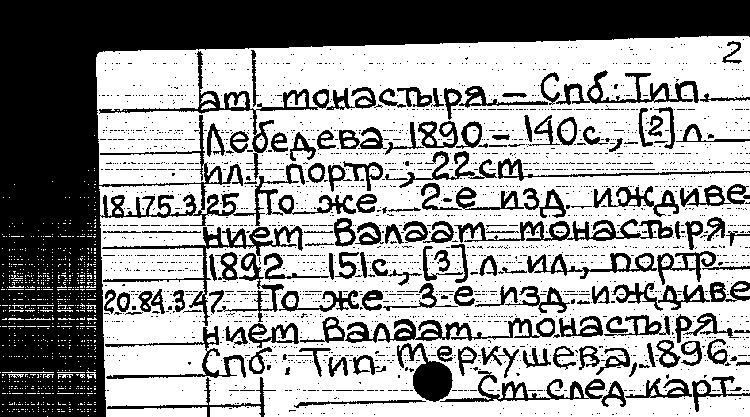 2
ат. монастыря. — Спб: Тип.
Лебедева, 1890 – 140с., [2] л.
ил., портр. ; 22 см.
18.175.3.25 То же. 2-е изд. иждиве
нием Валаат. монастыря,
1892. 151с., [3] л. ил., портр.
20.84.3.47. То же. 3-е изд. иждиве
нием Валаат. монастыря,
Спб.: Тип. Меркушева, 1896.
См. след карт.